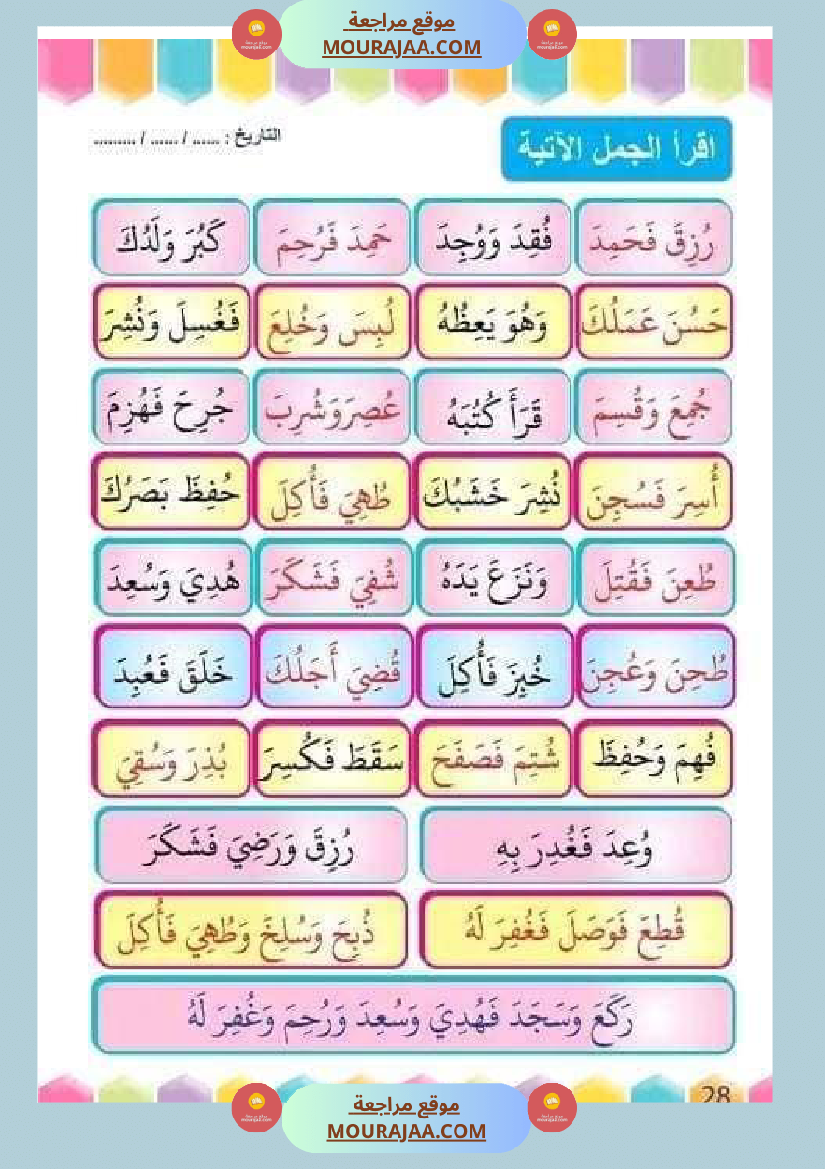 موقع مراجعة
MOURAJAA.COM
اقرأ الجمل الآتية
التاريخ : ...... / ...... / .........
رُزِقَ فَحَمِدَ فُقِدَ وَوُجِدَ حَمِدَ فَرُحِمَ كَبُرَ وَلَدُكَ
حَسُنَ عَمَلُكَ وَهُوَ يَعِظُهُ لُبِسَ وَخُلِعَ فَغُسِلَ وَنُشِرَ
جُمِعَ وَقُسِمَ قَرَأَ كُتُبَهُ عُصِرَوَشُرِبَ جُرِحَ فَهُزِمَ
أُسِرَ فَسُجِنَ نُشِرَ خَشَبُكَ طُهِيَ فَأُكِلَ حُفِظَ بَصَرُكَ
طُعِنَ فَقُتِلَ وَنَزَعَ يَدَهُ شُفِيَ فَشَكَرَ هُدِيَ وَسُعِدَ
طُحِنَ وَعُجِنَ خُبِزَ فَأُكِلَ قُضِيَ أَجَلُكَ خَلَقَ فَعُبِدَ
فُهِمَ وَحُفِظَ شُتِمَ فَصَفَحَ سَقَطَ فَكُسِرَ بُذِرَ وَسُقِيَ
وُعِدَ فَغُدِرَ بِهِ رُزِقَ وَرَضِيَ فَشَكَرَ
قُطِعَ فَوَصَلَ فَغُفِرَ لَهُ ذُبِحَ وَسُلِخَ وَطُهِيَ فَأُكِلَ
رَكَعَ وَسَجَدَ فَهُدِيَ وَسُعِدَ وَرُحِمَ وَغُفِرَ لَهُ
28
موقع مراجعة
MOURAJAA.COM